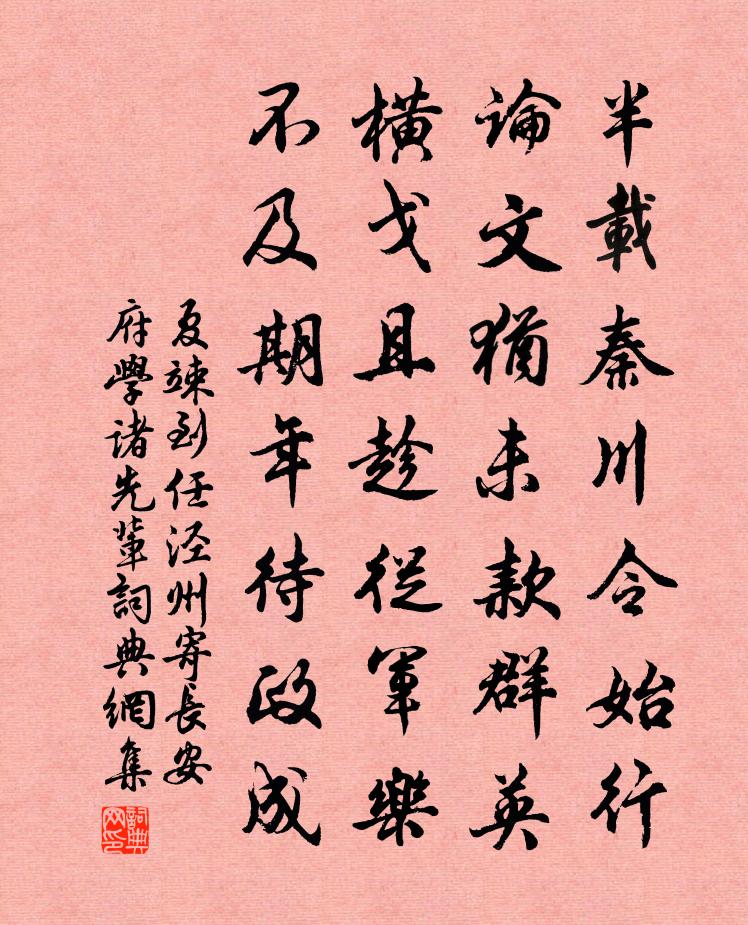 半載秦川令始行
論文猶未款群英
橫戈且趁從軍樂
不及期年待政成
夏竦到任涇州寄長安
府學诸先輩詞典網集
詞典网印